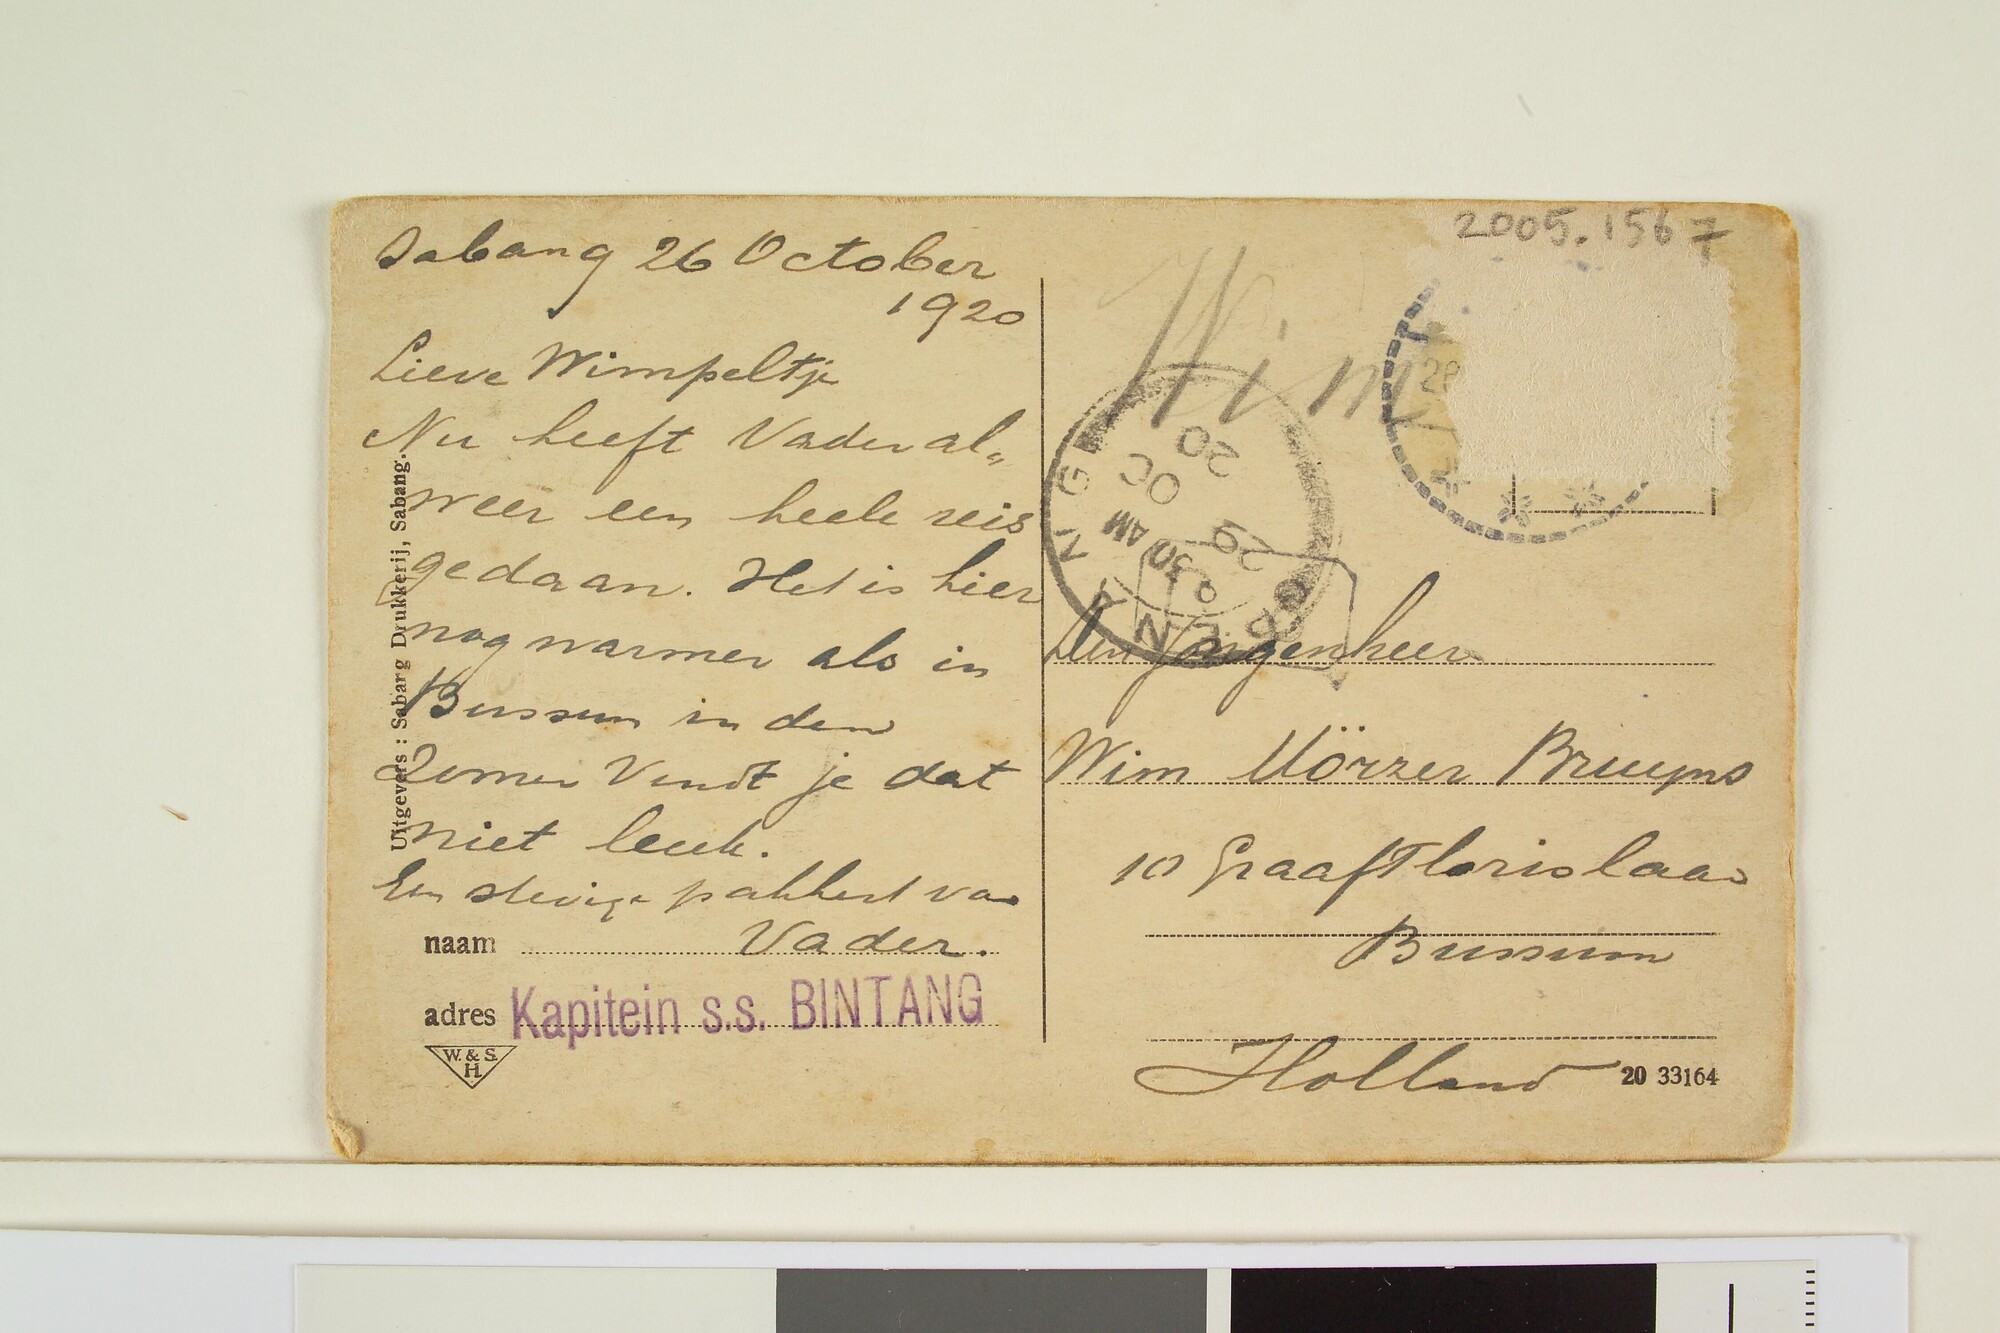 2005.1567
Sabang 26 October
1920
Lieve Wimpeltje
Nu heeft Vader al„
weer een heele reis
gedaan. Het is hier
nog warmer als in
Bussum in den
Zomer Vindt je dat
niet leuk.
Een stevige pakkert van
Vader.
naam
adres Kapitein s.s. BINTANG
W. & S.
H.
Uitgevers : Sabang Drukkerij, Sabang.
Wim
28
PENANG
9 30 AM
29
OC
20
Den Jongenheer
Wim Mörzer Bruyns
10 Graaf Florislaan
Bussum
Holland
20 33164